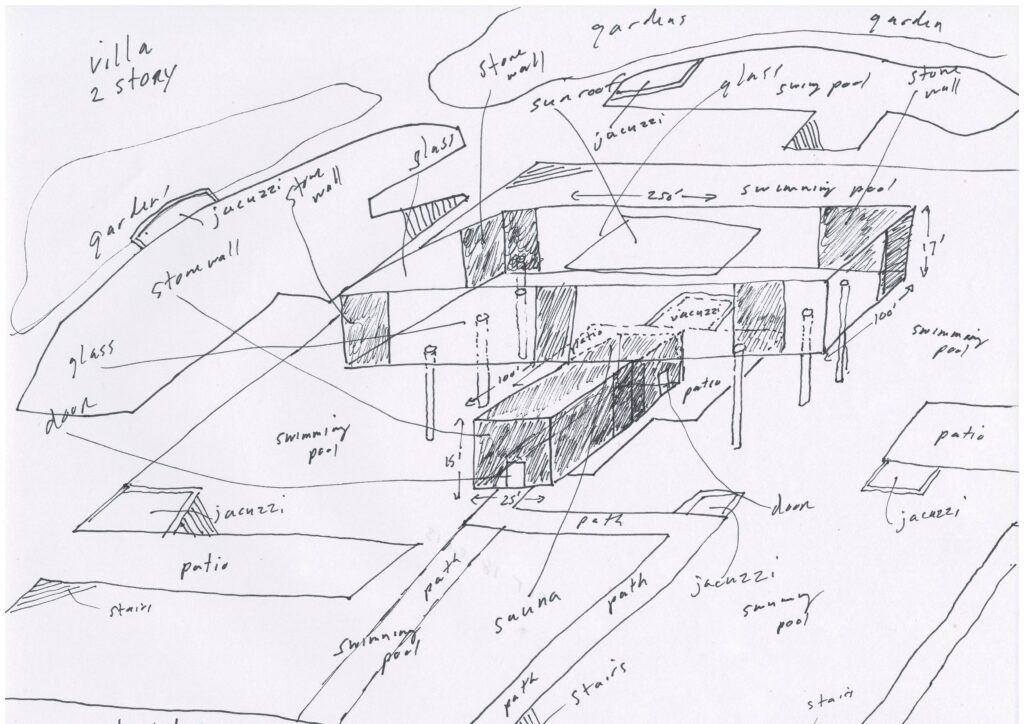 villa
2 STORY
gardens
garden
stone
wall
sunroof
glass
swing pool
stone
wall
jacuzzi
glass
garden
jacuzzi
stone
wall
250'
swimming pool
17'
stone wall
100'
swimming
pool
glass
patio
jacuzzi
100'
patio
door
swimming
pool
15'
25'
patio
jacuzzi
path
door
jacuzzi
patio
path
path
jacuzzi
stairs
sauna
swimming
pool
swimming
pool
path
stairs
stairs